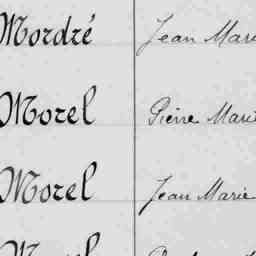 Mordré Jean Marie
Morel Pierre Marie
Morel Jean Marie